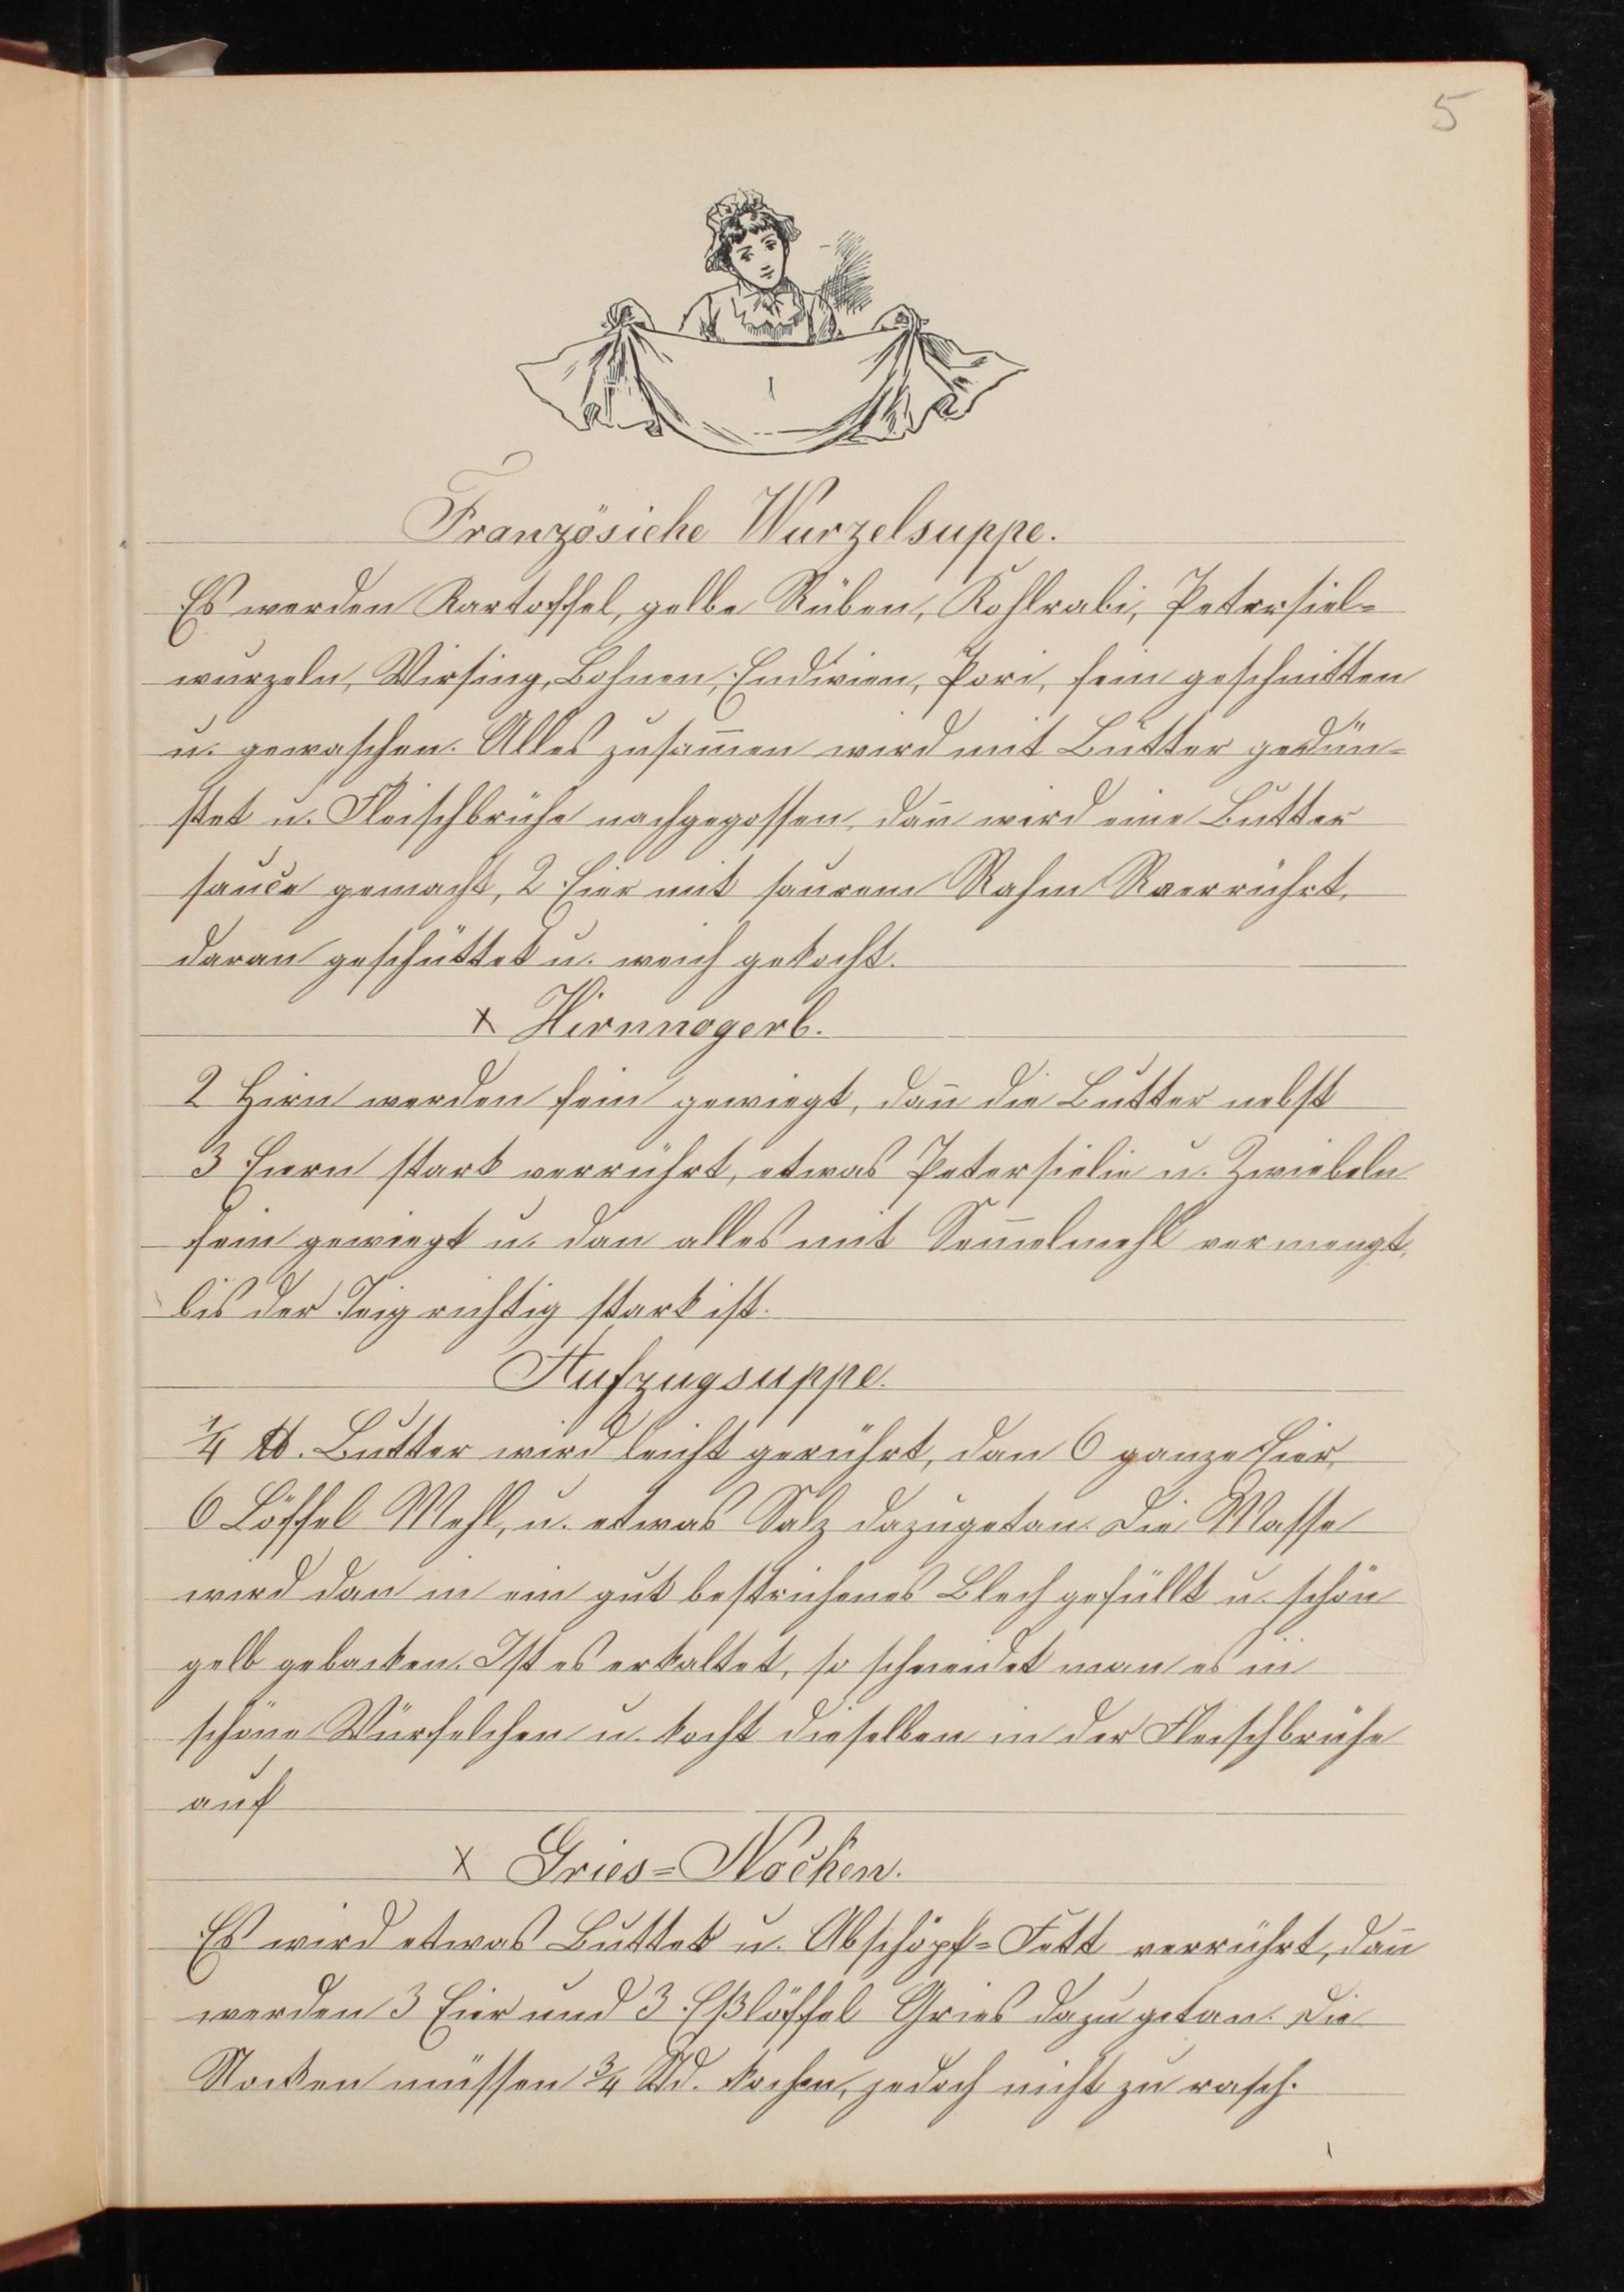 5
1
Französiche Wurzelsuppe.
Es werden Kartoffel, gelbe Rüben, Kohlrabi, Petersiel=
wurzeln, Wirsing, Bohnen, Endivien, Pori, fein geschnitten
u. gewaschen. Alles zusam̅en wird mit Butter gedün=
stet u. Fleischbrühe nachgegossen, dan̅ wird eine Butter
sauce gemacht, 2 Eier mit saurem Rahm verrührt,
daran geschüttet u. weich gekocht.
x Hirnnogerl.
2 Hirn werden fein gewiegt, dan̅ die Butter nebst
3 Eiern stark verrührt, etwas Petersielie u. Zwiebeln
fein gewiegt u. dan alles mit Sem̅elmehl vermengt,
bis der Teig richtig stark ist.
Aufzugsuppe.
1/4 ℔. Butter wird leicht gerührt, dan 6 ganze Eier,
6 Löffel Mehl, u. etwas Salz dazugetan. Die Masse
wird dan in ein gut bestrichenes Blech gefüllt u. schön
gelb gebacken. Ist es erkaltet, so schneidet man es in
schöne Würfelchen u. kocht dieselben in der Fleischbrühe
auf
x Gries=Nocken.
Es wird etwas Butter u. Abschöpf=Fett verrührt, dan̅
werden 3 Eier und 3 Eßlöffel Gries dazu getan. Die
Nocken müssen 3/4 Std. kochen, jedoch nicht zu rasch.